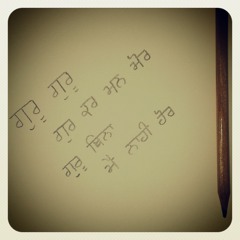 ਗੁਰੂ ਗੁਰੂ
ਗੁਰ ਕਰ ਮਨ ਮੋਰ
ਗੁਰੂ ਬਿਨਾ
ਮੈ ਨਾਹੀ ਹੋਰ